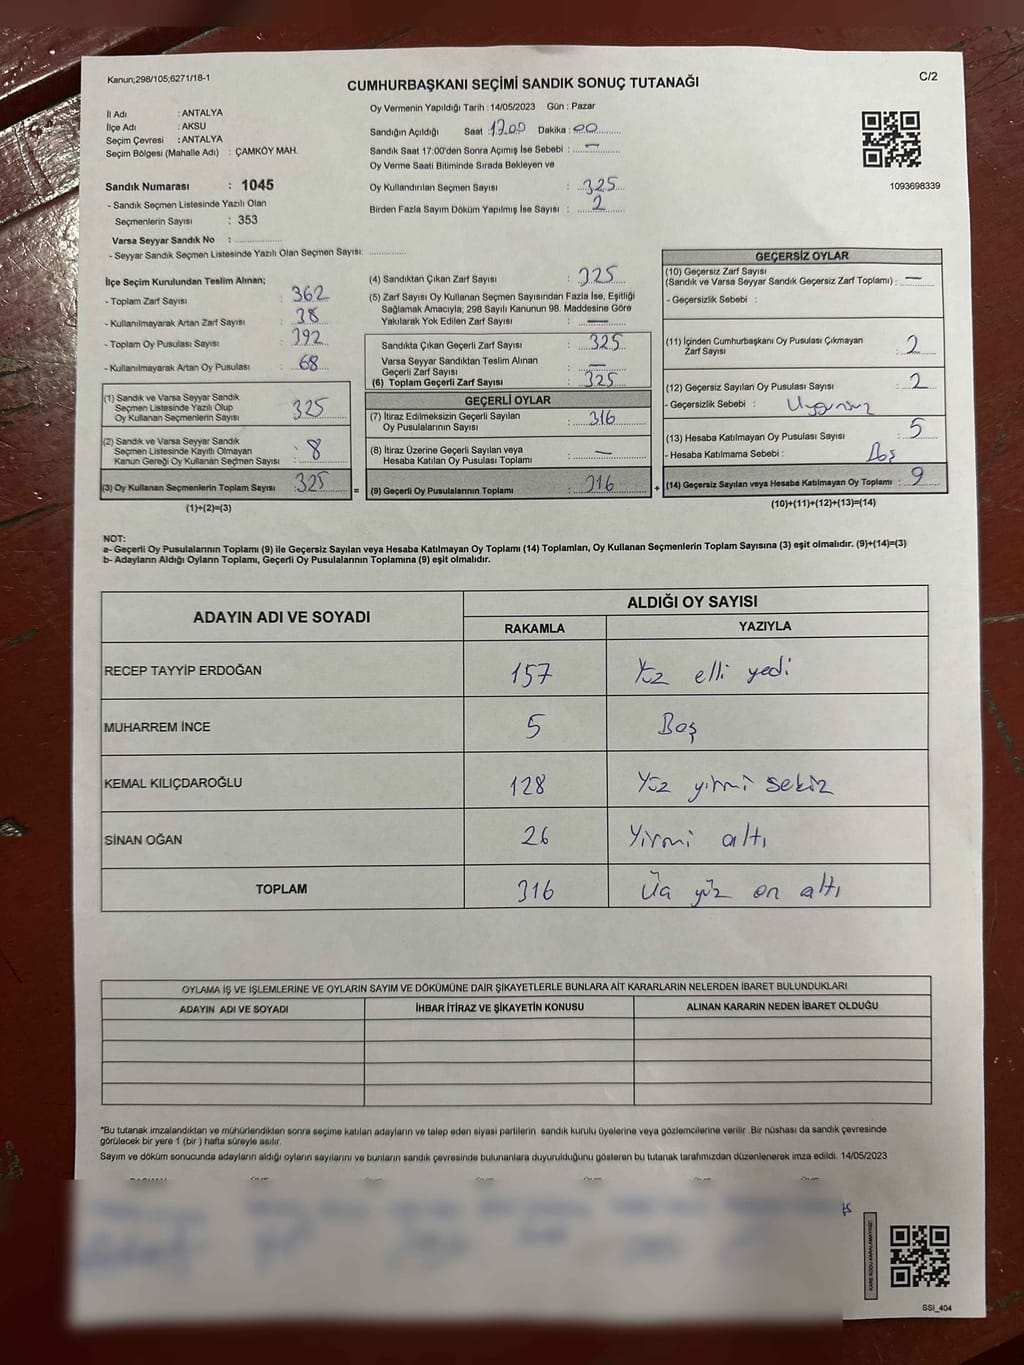 Kanun;298/105;6271/18-1
C/2
CUMHURBAŞKANI SEÇİMİ SANDIK SONUÇ TUTANAĞI
İl Adı : ANTALYA
İlçe Adı : AKSU
Seçim Çevresi : ANTALYA
Seçim Bölgesi (Mahalle Adı) : ÇAMKÖY MAH.
Sandık Numarası : 1045
- Sandık Seçmen Listesinde Yazılı Olan
Seçmenlerin Sayısı : 353
Varsa Seyyar Sandık No : ..............
- Seyyar Sandık Seçmen Listesinde Yazılı Olan Seçmen Sayısı: ............
Oy Vermenin Yapıldığı Tarih : 14/05/2023 Gün : Pazar
Sandığın Açıldığı Saat : 17.00 Dakika : 00
Sandık Saat 17:00'den Sonra Açımış İse Sebebi : —
Oy Verme Saati Bitiminde Sırada Bekleyen ve
Oy Kullandırılan Seçmen Sayısı : 325
Birden Fazla Sayım Döküm Yapılmış İse Sayısı : 2
1093698339
İlçe Seçim Kurulundan Teslim Alınan;
- Toplam Zarf Sayısı : 362
- Kullanılmayarak Artan Zarf Sayısı : 38
- Toplam Oy Pusulası Sayısı : 392
- Kullanılmayarak Artan Oy Pusulası : 68
(1) Sandık ve Varsa Seyyar Sandık
Seçmen Listesinde Yazılı Olup
Oy Kullanan Seçmenlerin Sayısı : 325
(2) Sandık ve Varsa Seyyar Sandık
Seçmen Listesinde Kayıtlı Olmayan
Kanun Gereği Oy Kullanan Seçmen Sayısı : 8
(3) Oy Kullanan Seçmenlerin Toplam Sayısı : 325 =
(1)+(2)=(3)
(4) Sandıktan Çıkan Zarf Sayısı : 325
(5) Zarf Sayısı Oy Kullanan Seçmen Sayısından Fazla İse, Eşitliği
Sağlamak Amacıyla; 298 Sayılı Kanunun 98. Maddesine Göre
Yakılarak Yok Edilen Zarf Sayısı : —
Sandıkta Çıkan Geçerli Zarf Sayısı : 325
Varsa Seyyar Sandıktan Teslim Alınan
Geçerli Zarf Sayısı : —
(6) Toplam Geçerli Zarf Sayısı : 325
GEÇERLİ OYLAR
(7) İtiraz Edilmeksizin Geçerli Sayılan
Oy Pusulalarının Sayısı : 316
(8) İtiraz Üzerine Geçerli Sayılan veya
Hesaba Katılan Oy Pusulası Toplamı : —
(9) Geçerli Oy Pusulalarının Toplamı : 316 +
GEÇERSİZ OYLAR
(10) Geçersiz Zarf Sayısı
(Sandık ve Varsa Seyyar Sandık Geçersiz Zarf Toplamı) : —
- Geçersizlik Sebebi :
(11) İçinden Cumhurbaşkanı Oy Pusulası Çıkmayan
Zarf Sayısı : 2
(12) Geçersiz Sayılan Oy Pusulası Sayısı : 2
- Geçersizlik Sebebi : Uygunsuz
(13) Hesaba Katılmayan Oy Pusulası Sayısı : 5
- Hesaba Katılmama Sebebi : Boş
(14) Geçersiz Sayılan veya Hesaba Katılmayan Oy Toplamı : 9
(10)+(11)+(12)+(13)=(14)
NOT:
a- Geçerli Oy Pusulalarının Toplamı (9) ile Geçersiz Sayılan veya Hesaba Katılmayan Oy Toplamı (14) Toplamları, Oy Kullanan Seçmenlerin Toplam Sayısına (3) eşit olmalıdır. (9)+(14)=(3)
b- Adayların Aldığı Oyların Toplamı, Geçerli Oy Pusulalarının Toplamına (9) eşit olmalıdır.
ADAYIN ADI VE SOYADI ALDIĞI OY SAYISI
RAKAMLA YAZIYLA
RECEP TAYYİP ERDOĞAN 157 Yüz elli yedi
MUHARREM İNCE 5 Beş
KEMAL KILIÇDAROĞLU 128 Yüz yirmi sekiz
SİNAN OĞAN 26 Yirmi altı
TOPLAM 316 Üç yüz on altı
OYLAMA İŞ VE İŞLEMLERİNE VE OYLARIN SAYIM VE DÖKÜMÜNE DAİR ŞİKAYETLERLE BUNLARA AİT KARARLARIN NELERDEN İBARET BULUNDUKLARI
ADAYIN ADI VE SOYADI İHBAR İTİRAZ VE ŞİKAYETİN KONUSU ALINAN KARARIN NEDEN İBARET OLDUĞU
*Bu tutanak imzalandıktan ve mühürlendikten sonra seçime katılan adayların ve talep eden siyasi partilerin sandık kurulu üyelerine veya gözlemcilerine verilir .Bir nüshası da sandık çevresinde
görülecek bir yere 1 (bir ) hafta süreyle asılır.
Sayım ve döküm sonucunda adayların aldığı oyların sayılarını ve bunların sandık çevresinde bulunanlara duyurulduğunu gösteren bu tutanak tarafımızdan düzenlenerek imza edildi. 14/05/2023
SSI_404